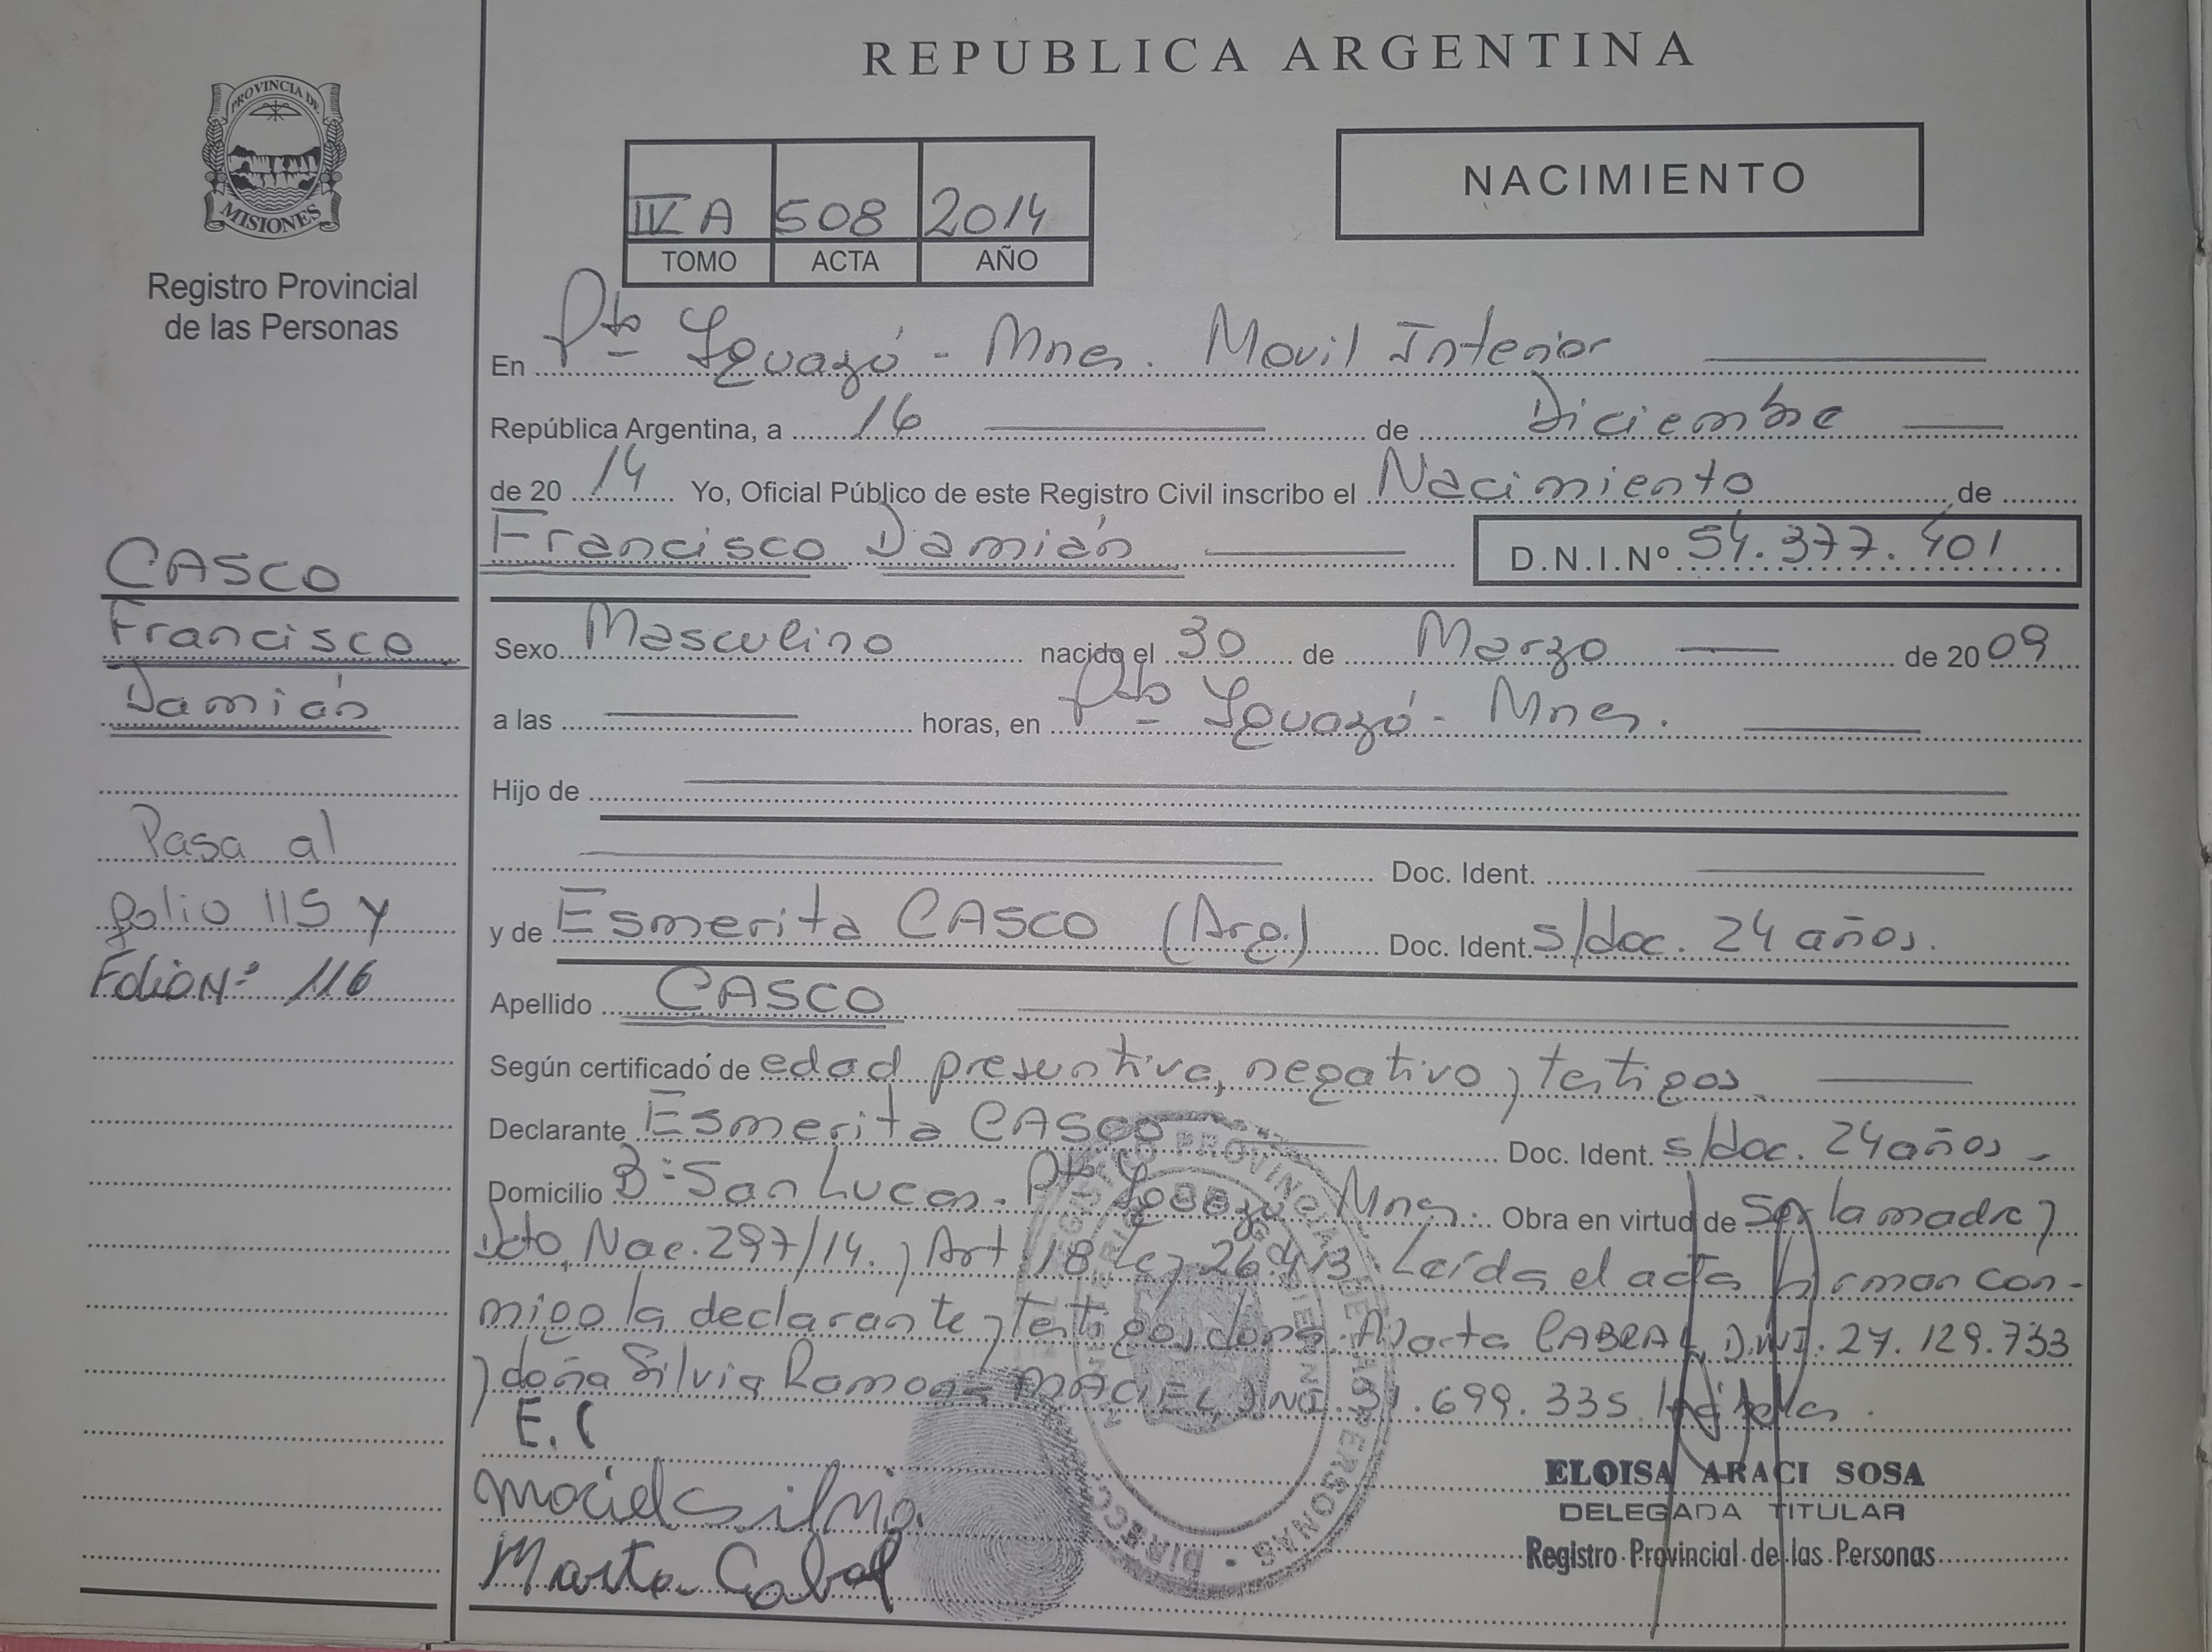 REPUBLICA ARGENTINA
PROVINCIA DE MISIONES
Registro Provincial
de las Personas
NACIMIENTO
IV A 508 2014
TOMO ACTA AÑO
En Pto Iguazú - Mnes. Movil Interior
República Argentina, a 16 de Diciembre
de 20 14 Yo, Oficial Público de este Registro Civil inscribo el Nacimiento de
Francisco Damián D.N.I.Nº 54.377.401
CASCO
Francisco
Damián
Pasa al
folio 115 y
Folio Nº 116
Sexo Masculino nacido el 30 de Marzo de 20 09
a las horas, en Pto Iguazú - Mnes.
Hijo de
Doc. Ident.
y de Esmerita CASCO (Arg.) Doc. Ident. s/doc. 24 años.
Apellido CASCO
Según certificado de edad presuntiva, negativo y testigos
Declarante Esmerita CASCO Doc. Ident. s/doc. 24 años -
Domicilio Bº San Lucas - Pto Iguazú - Mnes. Obra en virtud de ser la madre y
Dcto. Nac. 297/14. y Art. 18 Ley 26.413. Leída el acta firman con-
migo la declarante y testigos, doña Marta CABRAL, D.N.I. 27.129.733
y doña Silvia Ramona MACIEL, DNI. 31.699.335.
E.C
Maciel Silvia.
Marta Cabral
ELOISA ARACI SOSA
DELEGADA TITULAR
Registro Provincial de las Personas